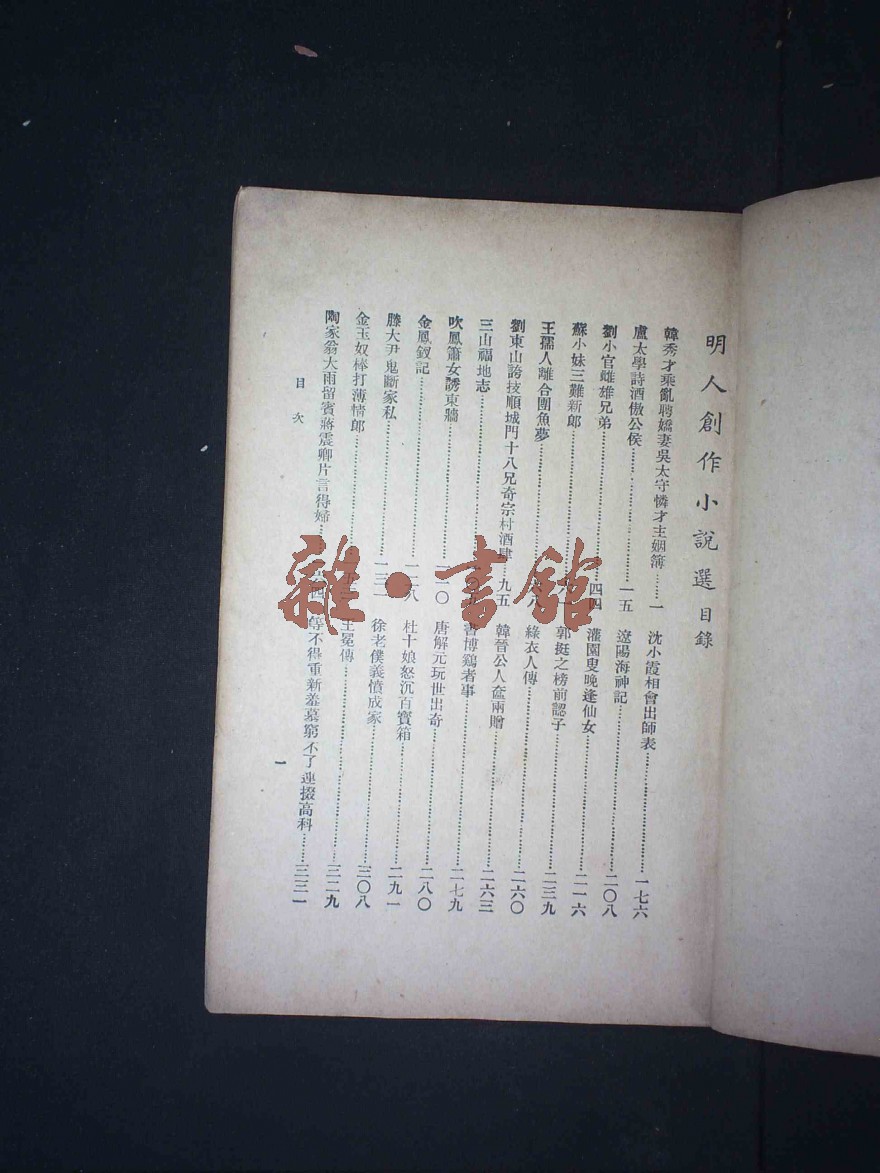 明人創作小說選 目錄
韓秀才乘亂聘嬌妻吳太守憐才主姻簿……一
盧太學詩酒傲公侯……一五
劉小官雌雄兄弟……四四
蘇小妹三難新郎……
王孺人離合團魚夢……六八
劉東山誇技順城門十八兄奇宗村酒肆……九五
三山福地志……
吹鳳簫女誘東牆……一二〇
金鳳釵記……一二八
滕大尹鬼斷家私……一三一
金玉奴棒打薄情郎……
陶家翁大雨留賓蔣震卿片言得婦……
沈小霞相會出師表……一七六
遼陽海神記……二〇八
灌園叟晚逢仙女……二一六
郭挺之榜前認子……二三九
綠衣人傳……二六〇
韓晉公人奩兩贈……二六三
書博鷄者事……二七九
唐解元玩世出奇……二八〇
杜十娘怒沉百寶箱……二九一
徐老僕義憤成家……三〇八
王冕傳……三二九
等不得重新羞墓窮不了連掇高科……三三一
目次
一
雜·書館